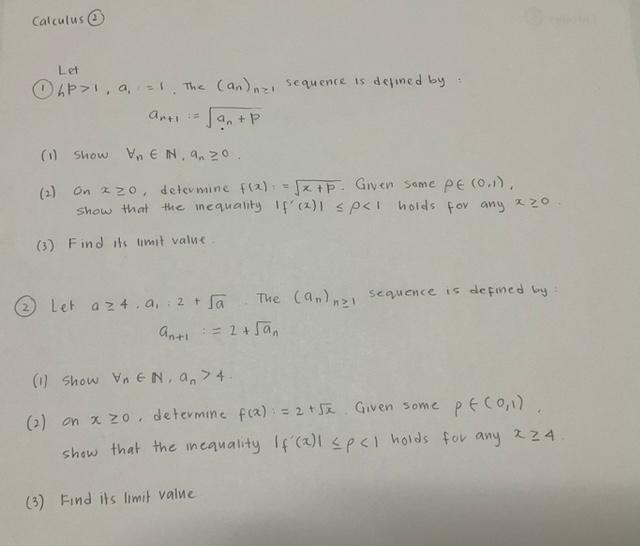 Calculus ②
Let
① p>1, a₁ := 1. The (aₙ)ₙ≥₁ sequence is defined by :
aₙ₊₁ := √(aₙ + p)
(1) Show ∀n ∈ ℕ, aₙ ≥ 0.
(2) On x ≥ 0, determine f(x) := √(x+p). Given some ρ∈(0,1),
show that the inequality |f'(x)| ≤ ρ<1 holds for any x ≥ 0.
(3) Find its limit value.
② Let a ≥ 4. a₁ : 2 + √a . The (aₙ)ₙ≥₁ sequence is defined by :
aₙ₊₁ := 2 + √aₙ
(1) Show ∀n ∈ ℕ, aₙ > 4.
(2) on x ≥ 0, determine f(x) := 2 + √x. Given some ρ ∈ (0,1),
show that the inequality |f'(x)| ≤ ρ<1 holds for any x ≥ 4.
(3) Find its limit value